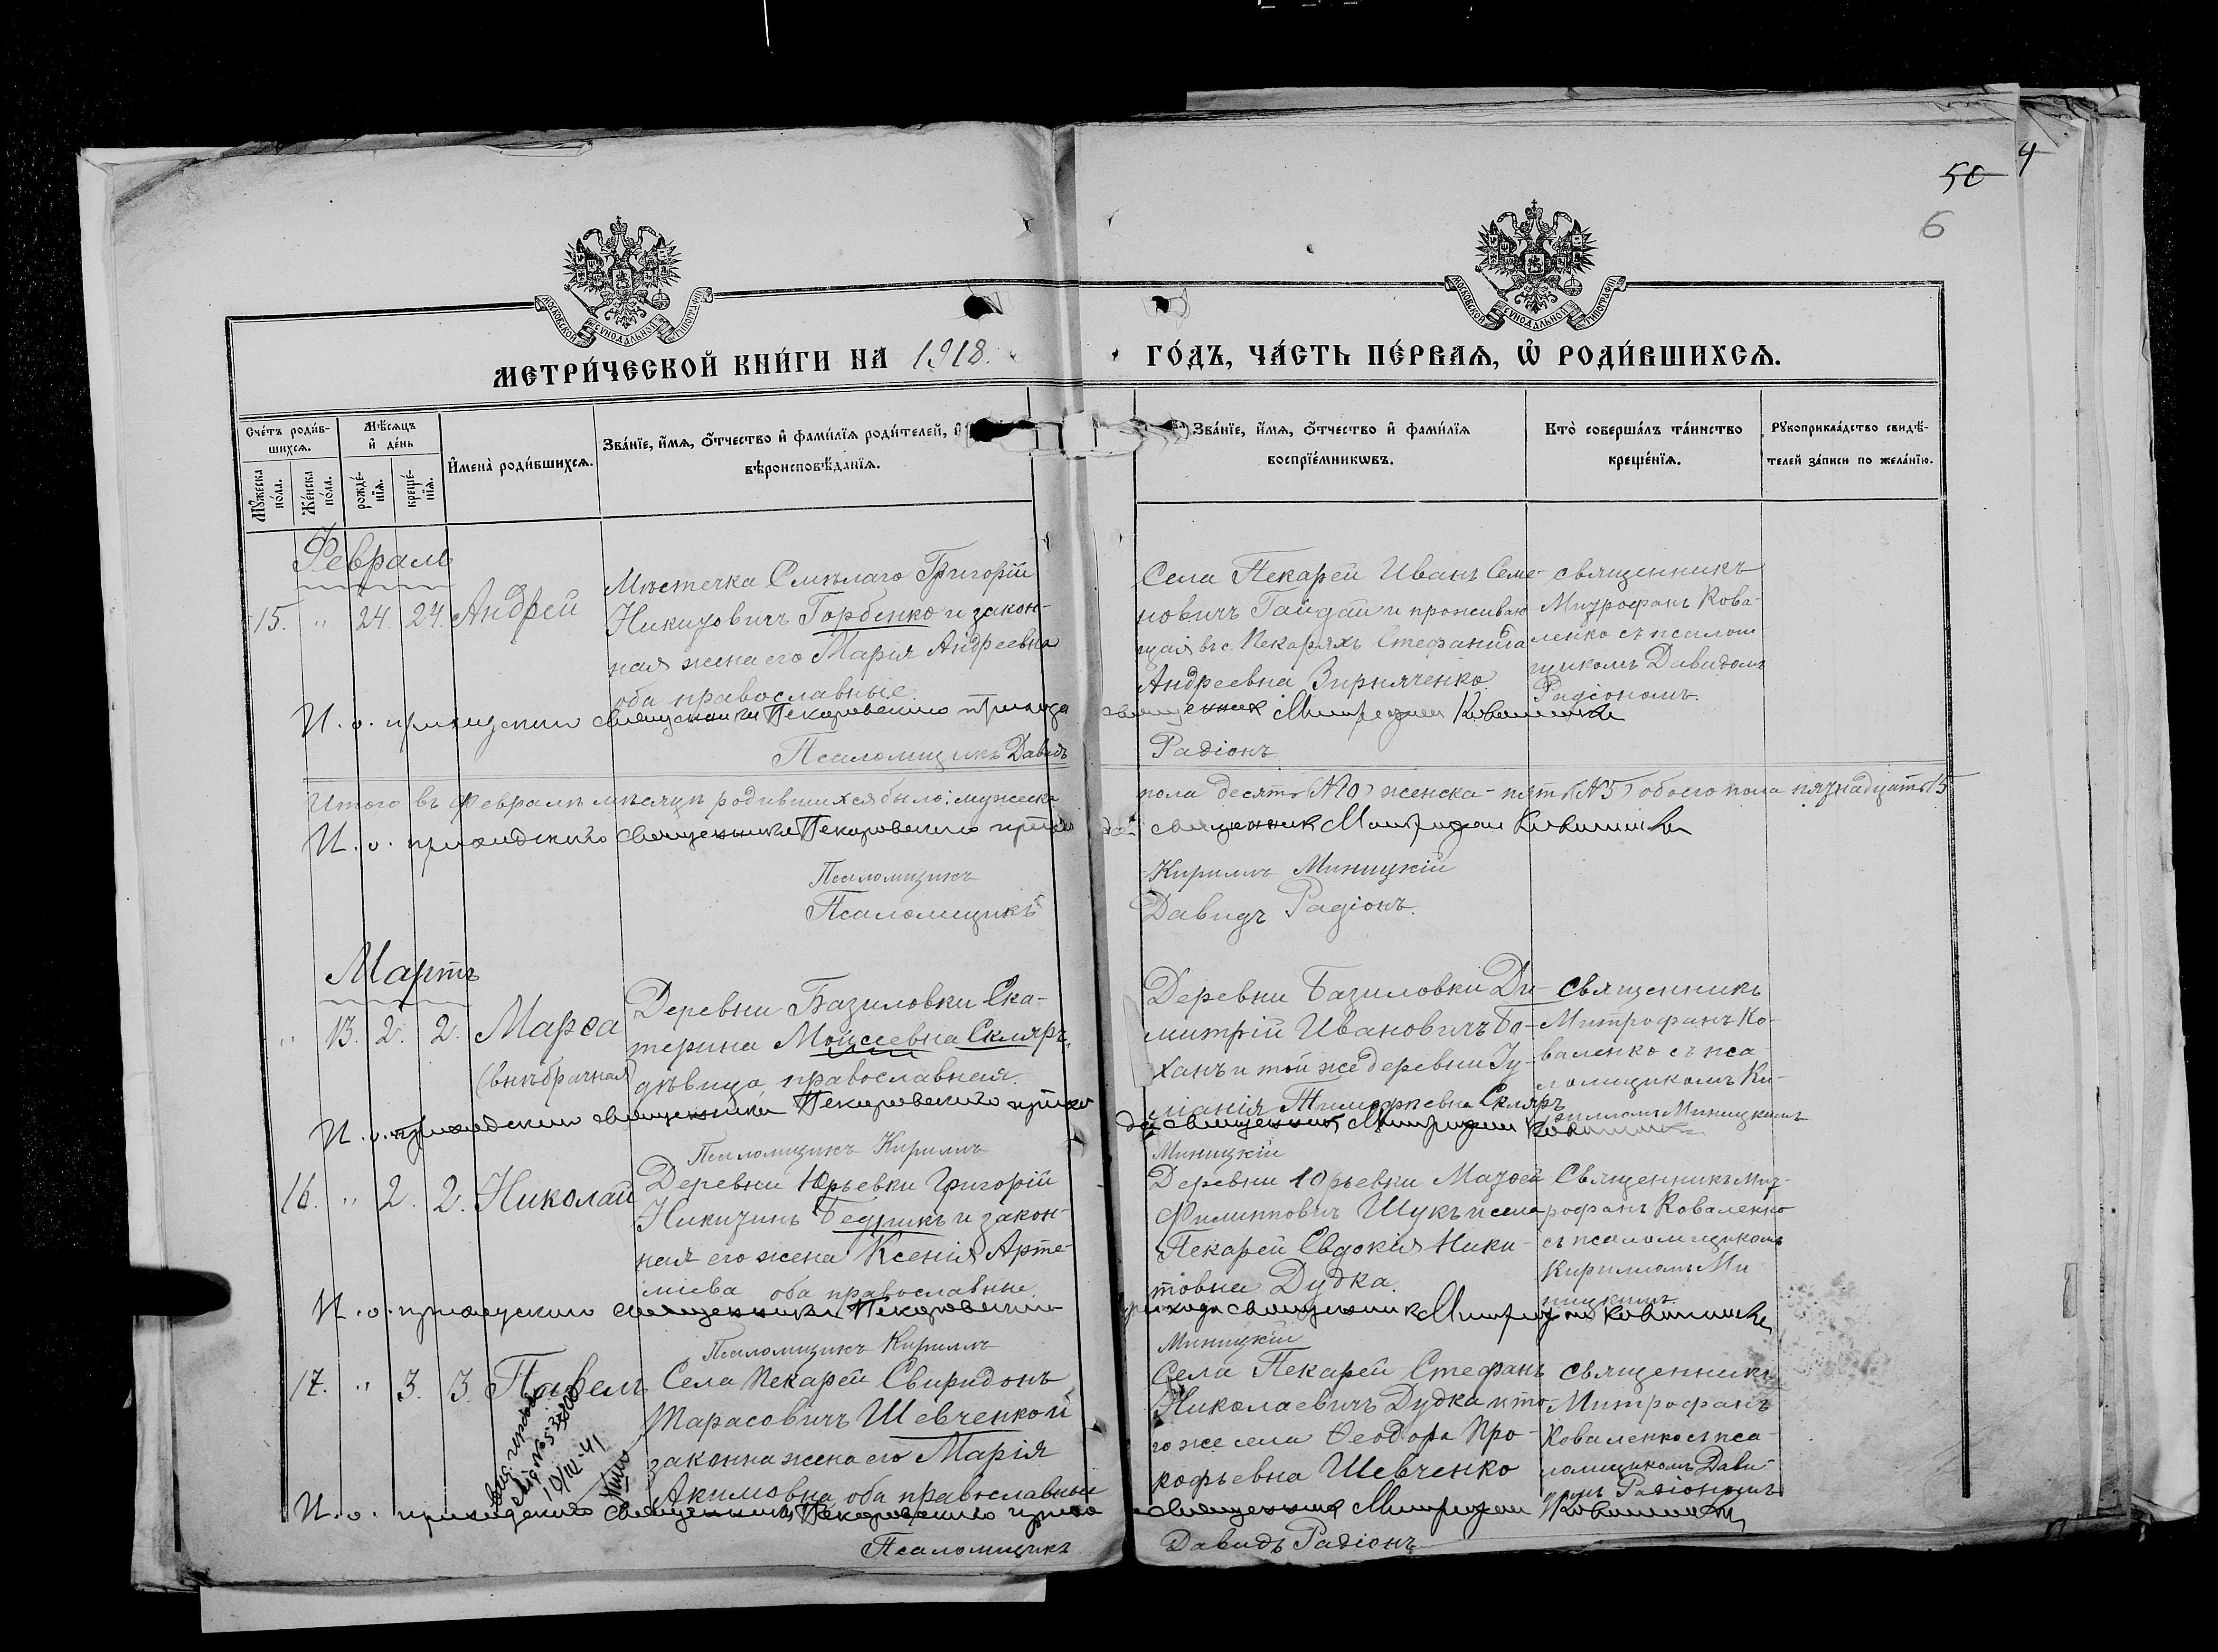 50 4
6
МОСКОВСКОЙ СѴНОДАЛЬНОЙ ТИПОГРАФІИ
МОСКОВСКОЙ СѴНОДАЛЬНОЙ ТИПОГРАФІИ
МЕТРИ́ЧЕСКОЙ КНИ́ГИ НА 1918.
ГО́ДЪ, ЧА́СТЬ ПЕ́РВАѦ, Ѡ҆ РОДИ́ВШИХСѦ.
Сче́тъ роди́в-
шихсѧ.
Мꙋ́жеска
по́ла.
Же́нска
по́ла.
Мѣ́сѧцъ
и҆ де́нь
рожде́-
нїѧ.
креще́-
нїѧ.
И҆мена̀ роди́вшихсѧ.
Зва́нїе, и҆́мѧ, ѻ҆́тчество и҆ фами́лїѧ роди́телей, и҆
вѣроисповѣ́данїѧ.
Зва́нїе, и҆́мѧ, ѻ҆́тчество и҆ фами́лїѧ
воспрїе́мникѡвъ.
Кто̀ соверша́лъ та́инство
креще́нїѧ.
Рꙋкоприкла́дство свидѣ́-
телей за́писи по жела́нїю.
Февраль
15. " 24. 24. Андрей
Мѣстечка Смѣлаго Григорій
Никитовичъ Горбенко и закон-
ная жена его Марія Андреевна
оба православные.
Села Пекарей Иванъ Семе-
новичъ Гайдай и проживаю
щая въ с. Пекаряхъ Стефанида
Андреевна
священникъ
Митрофанъ Кова-
ленко съ псалом
щикомъ Давидомъ
Радіономъ.
И. о. приходского священника Пекаровского прихода священник Митрофан Коваленко
Псаломщикъ Давидъ Радіонъ
Итого въ февралѣ мѣсяцѣ родившихся было: мужеска пола десять (№10) женска - пять (№5) обоего пола пятнадцать 15
И. о. приходского священника Пекаровского прихода священник Митрофан Коваленко
Псаломщикъ Кириллъ Миницкій
Псаломщикъ Давидъ Радіонъ.
Мартъ
" 13. 2. 2. Марѳа
(внѣбрачная)
Деревни Базиловки Ека-
терина Мойсеевна Скляръ,
дѣвица, православная.
Деревни Базиловки Ди-
митрій Ивановичъ Бо-
ханъ и той же деревни Іу-
ліанія Тимофѣевна Скляръ
священникъ
Митрофанъ Ко-
валенко съ пса-
ломщикомъ Ки-
рилломъ Миницкимъ
И. о. приходского священника Пекаровского прихода священник Митрофан Коваленко
Псаломщикъ Кириллъ Миницкій
16. " 2. 2. Николай
Деревни Юрьевки Григорій
Никитинъ Бедрикъ и закон-
ная его жена Ксенія Арте-
міева оба православные.
Деревни Юрьевки Матѳей
Филипповичъ Шукъ и села
Пекарей Евдокія Ники-
товна Дудка.
Священникъ Мит-
рофанъ Коваленко
съ псаломщикомъ
Кирилломъ Ми
ницкимъ.
И. о. приходского священника Пекаровского прихода священник Митрофан Коваленко
Псаломщикъ Кириллъ Миницкій
17. " 3. 3. Павелъ
Села Пекарей Свиридонъ
Тарасовичъ Шевченко и
законна жена его Марія
Акимовна оба православные
Села Пекарей Стефанъ
Николаевичъ Дудка и то
го же села Ѳеодора Про-
кофьевна Шевченко
священникъ
Митрофанъ
Коваленко съ пса-
ломщикомъ Дави-
домъ Радіономъ
10/III-41
И. о. приходского священника Пекаровского прихо священник Митрофан Коваленко
Псаломщикъ Давидъ Радіонъ